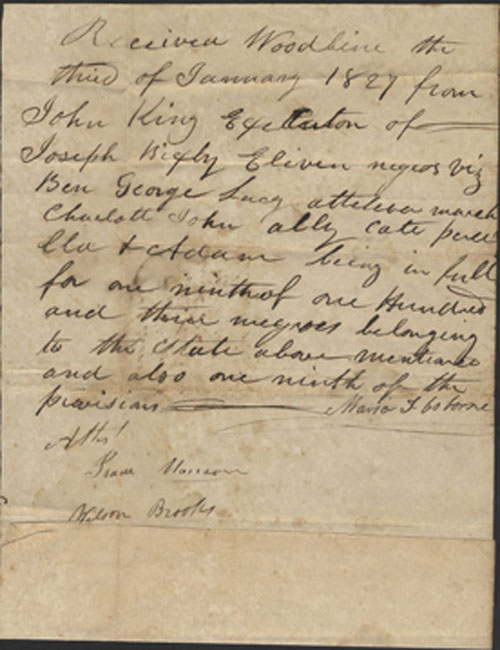 Received Woodbine the
third of January 1827 from
John King Executon of
Joseph Bixby Eliven negros viz
Ben George Lucy march
Charlott John ally cate
lla & Adam being in full
for one ninth of one Hundred
and three negroes belonging
to the state above mentioned
and also one ninth of the
provisions Maria T Osborne
Atts!
Isaac
Wilson Brooks